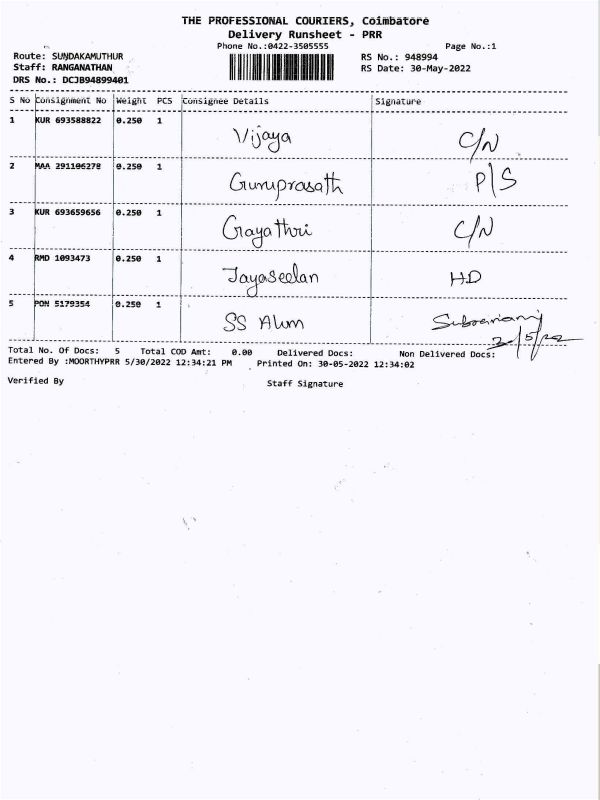 THE PROFESSIONAL COURIERS, Coimbatore
Delivery Runsheet - PRR
Phone No.:0422-3505555 Page No.:1
Route: SUNDAKAMUTHUR RS No.: 948994
Staff: RANGANATHAN RS Date: 30-May-2022
DRS No.: DCJB94899401
S No Consignment No Weight PCS Consignee Details Signature
1 KUR 693588822 0.250 1 Vijaya C/N
2 MAA 291106278 0.250 1 Guruprasath P/S
3 KUR 693659656 0.250 1 Gayathri C/N
4 RMD 1093473 0.250 1 Jayaseelan HD
5 PON 5179354 0.250 1 SS Alum
Total No. Of Docs: 5 Total COD Amt: 0.00 Delivered Docs: Non Delivered Docs:
Entered By :MOORTHYPRR 5/30/2022 12:34:21 PM Printed On: 30-05-2022 12:34:02
Verified By Staff Signature